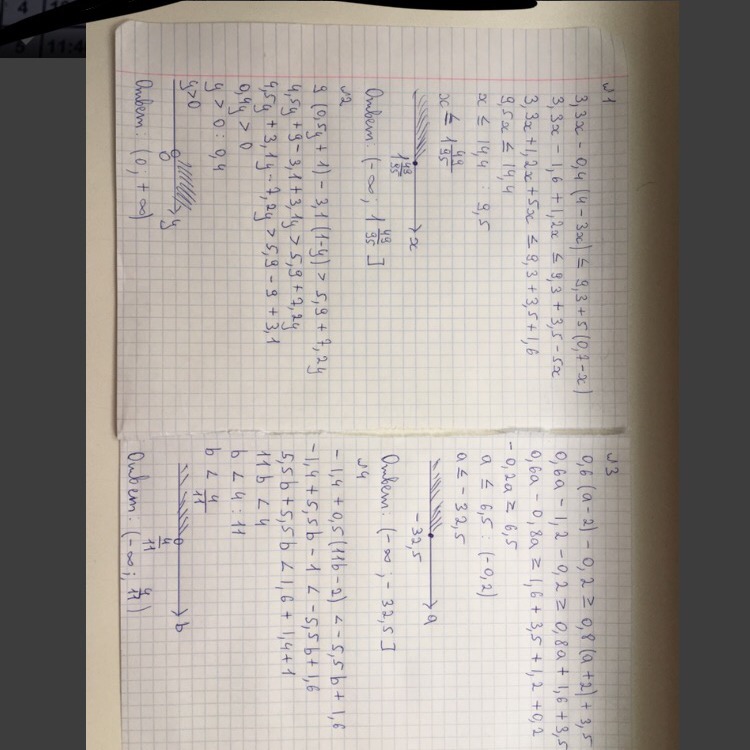 4
5 11:4
№1
3,3x - 0,4 (4 - 3x) ≤ 9,3 + 5 (0,7 - x)
3,3x - 1,6 + 1,2x ≤ 9,3 + 3,5 - 5x
3,3x + 1,2x + 5x ≤ 9,3 + 3,5 + 1,6
9,5x ≤ 14,4
x ≤ 14,4 : 9,5
x ≤ 1 49/95
x
1 49/95
Ответ: (-∞; 1 49/95]
№2
9 (0,5y + 1) - 3,1 (1-y) > 5,9 + 7,2y
4,5y + 9 - 3,1 + 3,1y > 5,9 + 7,2y
4,5y + 3,1y - 7,2y > 5,9 - 9 + 3,1
0,4y > 0
y > 0 : 0,4
y > 0
y
0
Ответ: (0; +∞)
№3
0,6 (a - 2) - 0,2 ≥ 0,8 (a + 2) + 3,5
0,6a - 1,2 - 0,2 ≥ 0,8a + 1,6 + 3,5
0,6a - 0,8a ≥ 1,6 + 3,5 + 1,2 + 0,2
-0,2a ≥ 6,5
a ≤ 6,5 : (-0,2)
a ≤ -32,5
a
-32,5
Ответ: (-∞; -32,5]
№4
-1,4 + 0,5 (11b - 2) < -5,5b + 1,6
-1,4 + 5,5b - 1 < -5,5b + 1,6
5,5b + 5,5b < 1,6 + 1,4 + 1
11b < 4
b < 4 : 11
b < 4/11
b
4/11
Ответ: (-∞; 4/11)